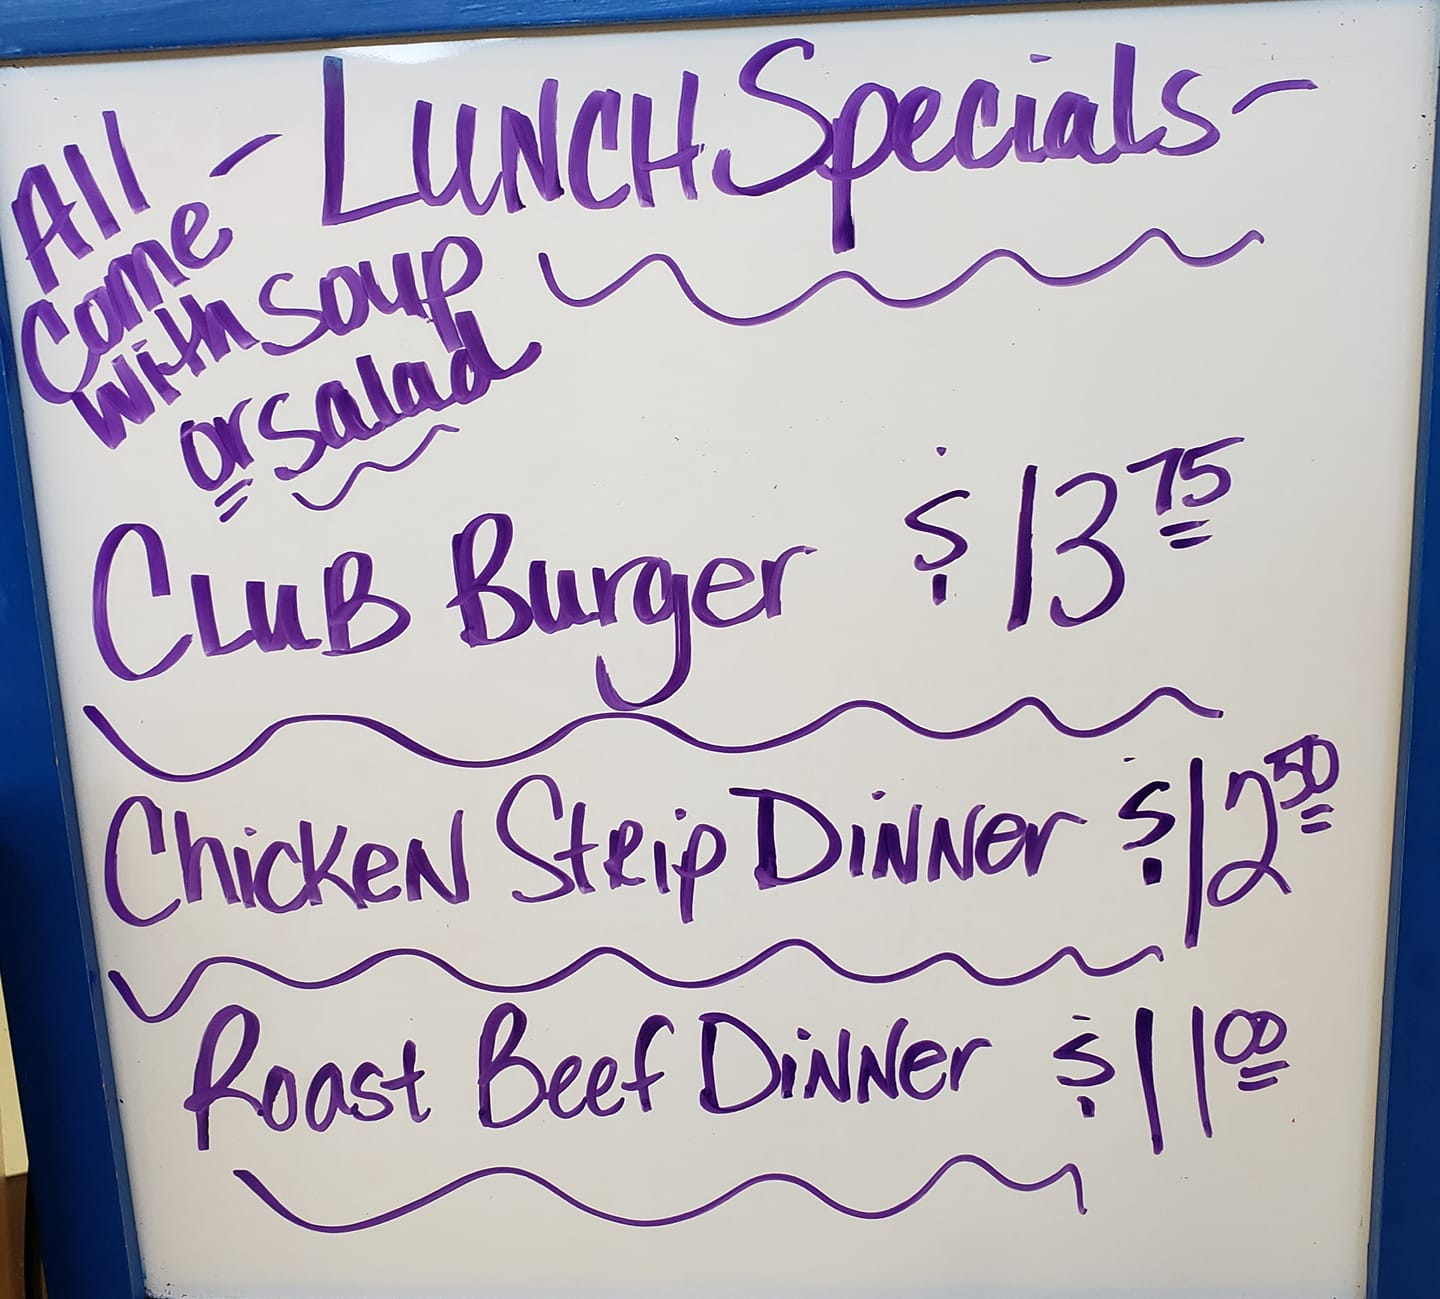 - LUNCH Specials -
All
Come
with soup
or salad
CLUB Burger $13 75
Chicken Strip Dinner $12 50
Roast Beef Dinner $11 00